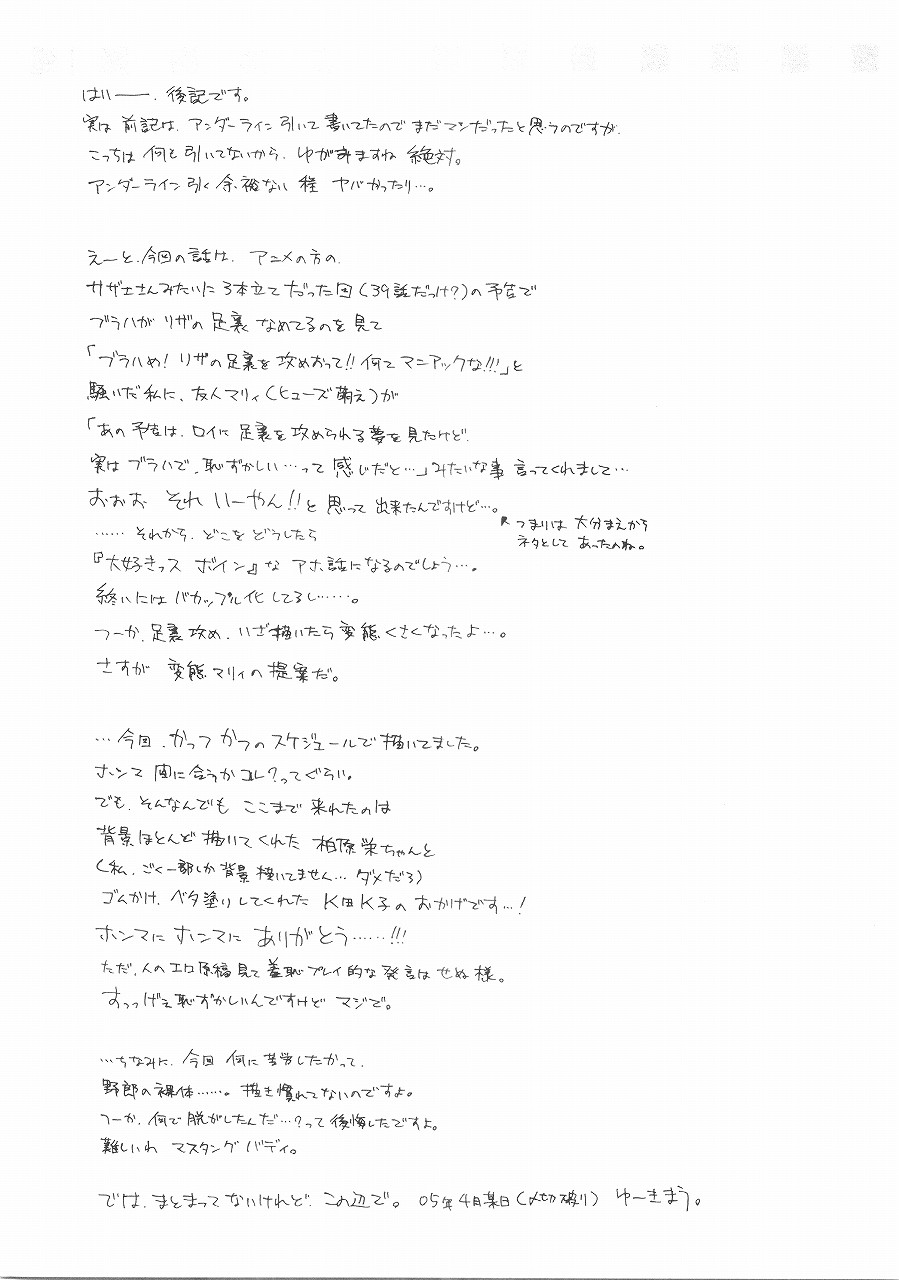 はいー。後記です。
実は 前記は、アンダーライン引いて書いてたので まだマシだったと思うのですが、
こっちは 何も引いてないから、ゆがみますね 絶対。
アンダーライン引く余裕ない程 ヤバかったり…。
えーと、今回の話は、アニメの方の、
サザエさんみたいに3本立てだった回(39話だっけ?)の予告で
ブラハがリザの足裏なめてるのを見て
「ブラハめ!リザの足裏を攻めおって!!何てマニアックな!!!」と
騒いだ私に、友人マリィ(ヒューズ萌え)が
「あの予告は、ロイに足裏を攻められる夢を見たけど、
実はブラハで、恥ずかしい…って感じだと…」みたいな事言ってくれまして…
おぉお それ いーやん!!と思って出来たんですけど…。
つまりは 大分まえから
ネタとして あったのね。
……それから、どこをどうしたら
『大好きっス ボイン』な アホ話になるのでしょう…。
終いにはバカップル化してるし……。
つーか、足裏攻め、いざ描いたら変態くさくなったよ…。
さすが 変態マリィの提案だ。
…今回、かつつかつのスケジュールで描いてました。
ホンマ 間に合うかコレ?ってぐらい。
でも、そんなんでも ここまで来れたのは
背景ほとんど描いてくれた 柏原栄ちゃんと
(私、ごく一部しか背景描いてません…ダメだろ)
ゴムかけ、ベタ塗りしてくれた K田K子のおかげです…!
ホンマに ホンマに ありがとう……!!!
ただ、人のエロ原稿見て羞恥プレイ的な発言はせぬ様。
すっっげえ恥ずかしいんですけど マジで。
…ちなみに、今回 何に苦労したかって、
野郎の裸体……。描き慣れてないのですよ。
つーか、何で脱がしたんだ…?って後悔したですよ。
難しいわ マスタングバディ。
では、まとまってないけれど、この辺で。 05年4月某日(〆切破り) ゆーきまう。